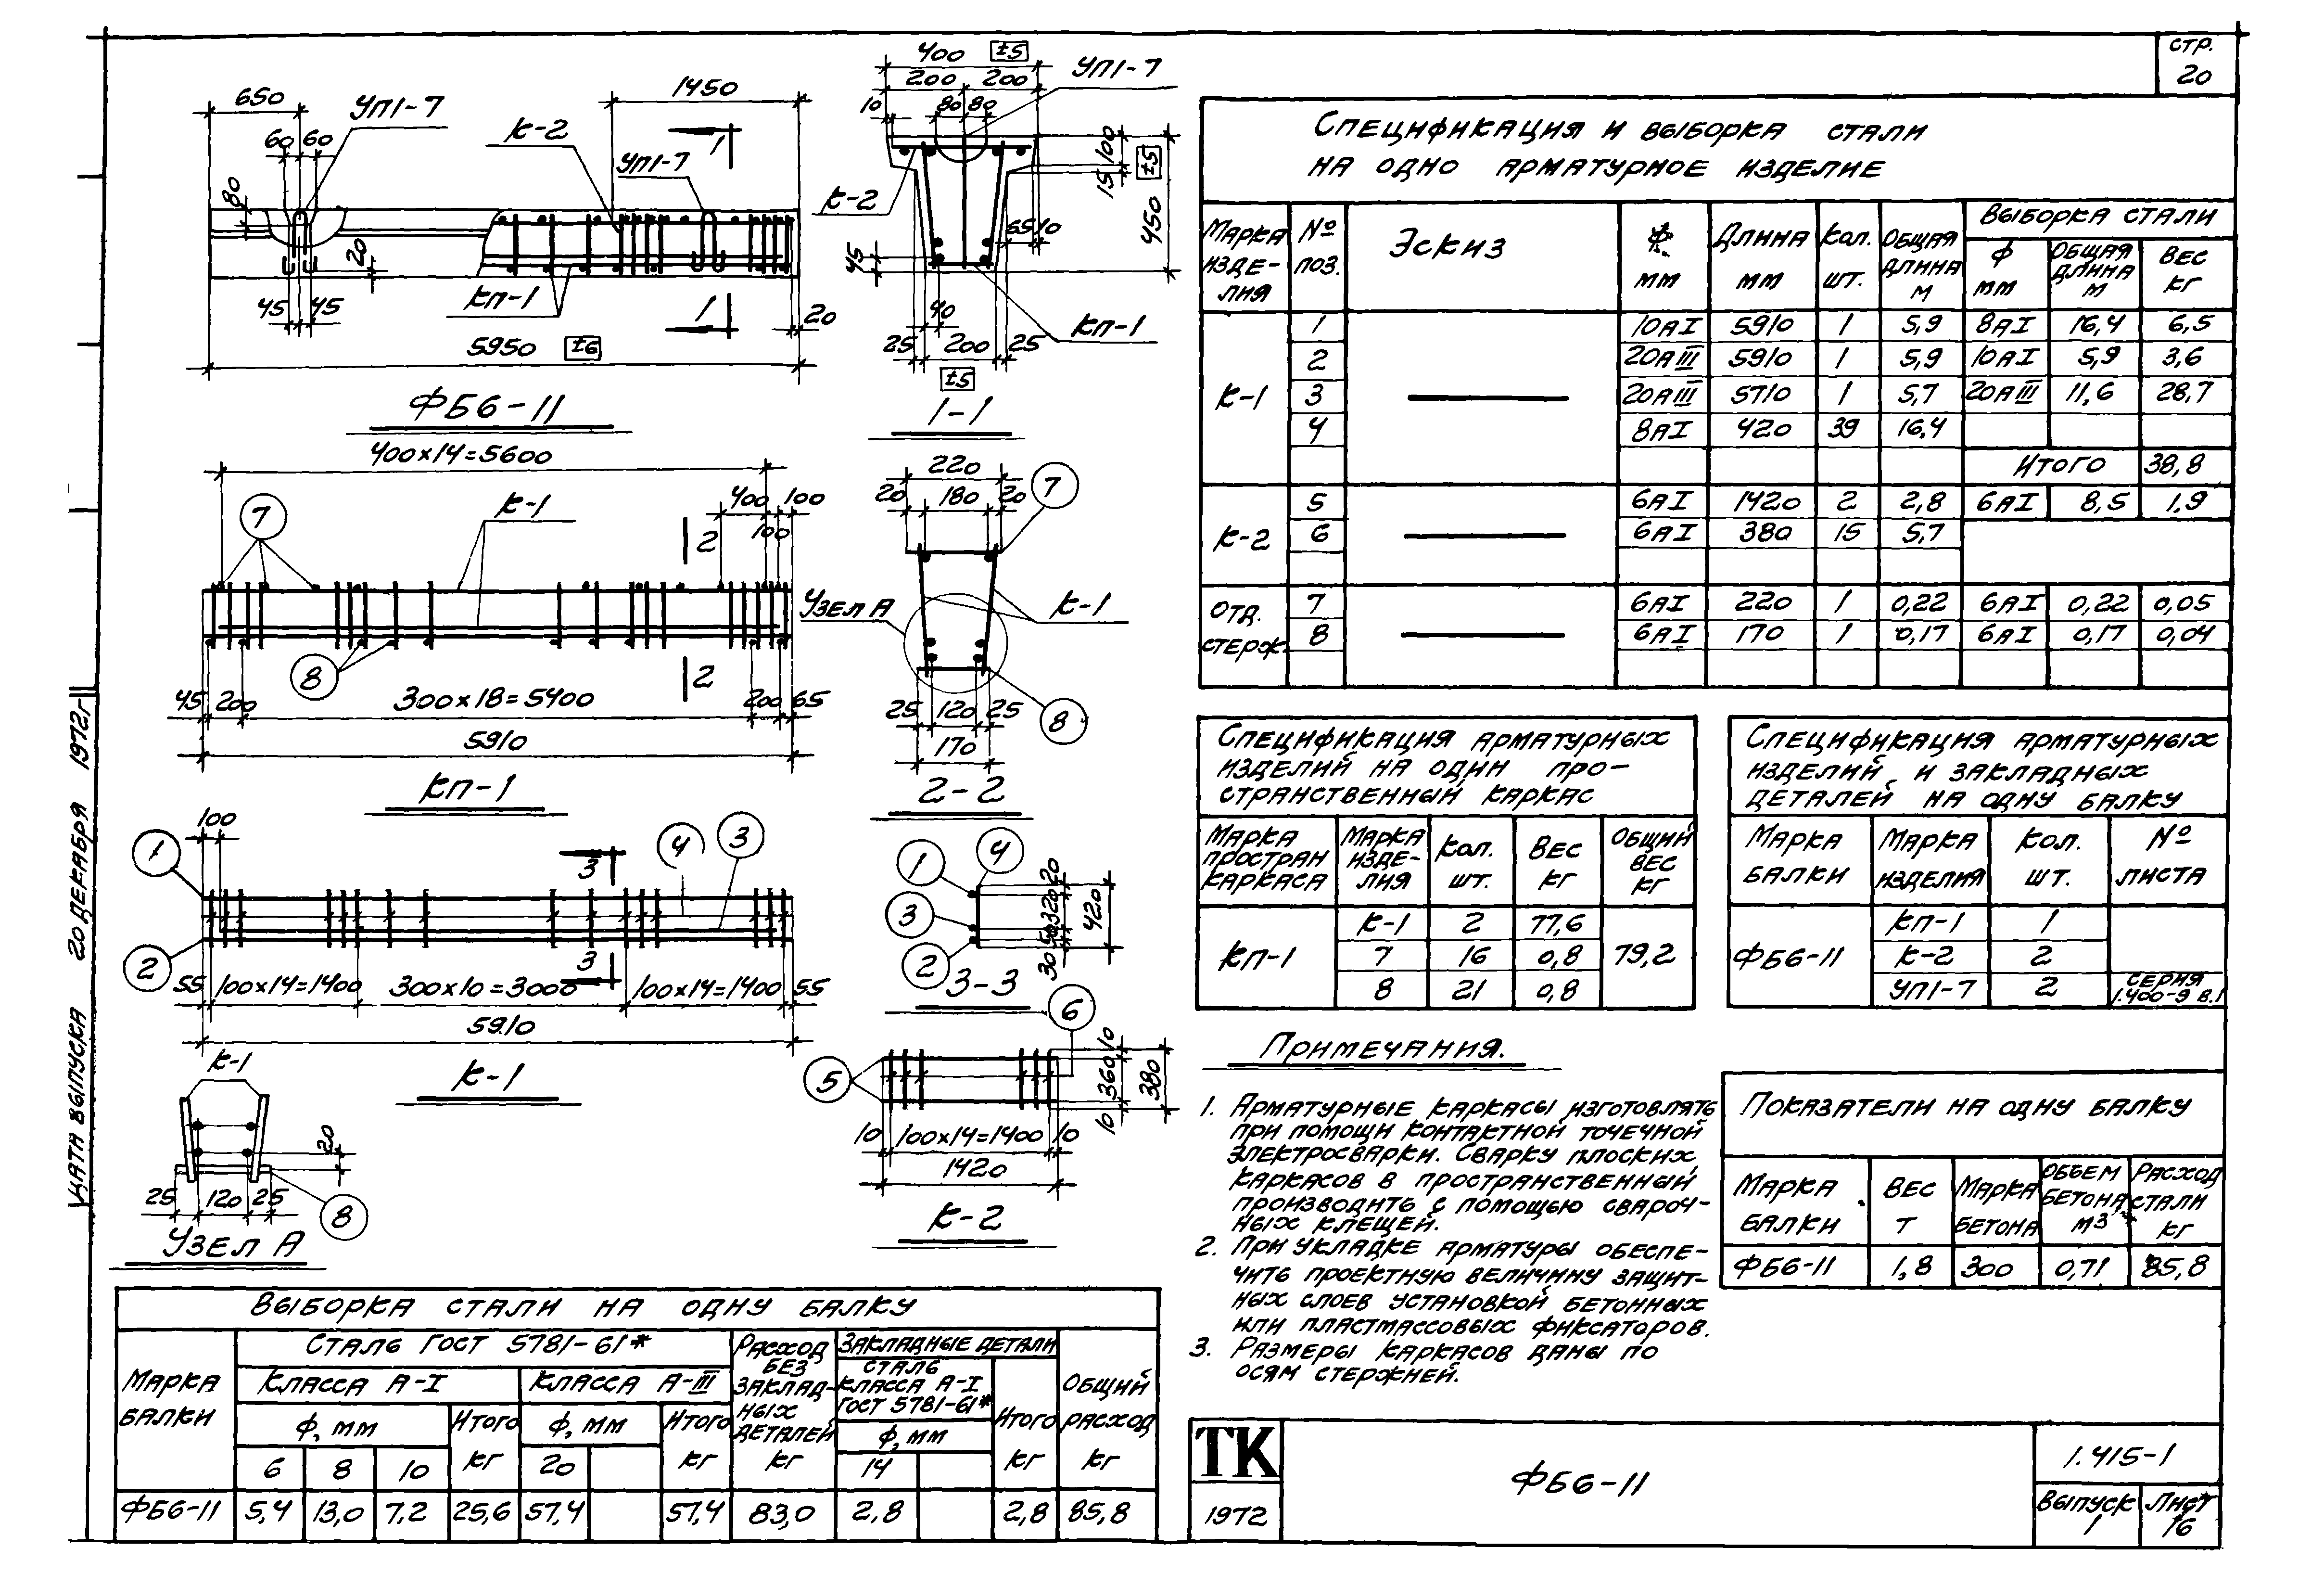 СТР.
20
650
УП1-7
60 60
80
К-2
УП1-7
1450
1
1
20
45 45
КП-1
20
5950 ±6
ФБ6-11
400 ±5
200 200
УП1-7
10
80 80
К-2
15 100
±5
450
65 10
45
40
25 200 25
±5
КП-1
1-1
400×14=5600
7
К-1
2
400 100
100
8
2
45 200 300×18=5400 200 65
5910
КП-1
220
20 180 20
7
УЗЕЛ А
К-1
25 120 25
170
8
2-2
100
1
3
4
3
2
3
55 100×14=1400 300×10=3000 100×14=1400 55
5910
К-1
1
4
3
2
20
320
50
30
420
3-3
К-1
20
25 120 25
8
УЗЕЛ А
5
6
10
360
10
380
10 100×14=1400 10
1420
К-2
ВЫБОРКА СТАЛИ НА ОДНУ БАЛКУ
МАРКА БАЛКИ
СТАЛЬ ГОСТ 5781-61*
КЛАССА А-I
КЛАССА А-III
Ф, ММ
ИТОГО КГ
Ф, ММ
ИТОГО КГ
6 8 10
20
РАСХОД
БЕЗ
ЗАКЛАД-
НЫХ
ДЕТАЛЕЙ
КГ
ЗАКЛАДНЫЕ ДЕТАЛИ
СТАЛЬ
КЛАССА А-I
ГОСТ 5781-61*
Ф, ММ
14
ИТОГО КГ
ОБЩИЙ
РАСХОД
КГ
ФБ6-11 5,4 13,0 7,2 25,6 57,4 57,4 83,0 2,8 2,8 85,8
СПЕЦИФИКАЦИЯ И ВЫБОРКА СТАЛИ
НА ОДНО АРМАТУРНОЕ ИЗДЕЛИЕ
МАРКА ИЗДЕ-ЛИЯ
№ ПОЗ.
ЭСКИЗ
Ф. ММ
ДЛИНА ММ
КОЛ. ШТ.
ОБЩАЯ ДЛИНА М
ВЫБОРКА СТАЛИ
Ф ММ
ОБЩАЯ ДЛИНА М
ВЕС КГ
К-1
1 10АI 5910 1 5,9 8АI 16,4 6,5
2 20АIII 5910 1 5,9 10АI 5,9 3,6
3 20АIII 5710 1 5,7 20АIII 11,6 28,7
4 8АI 420 39 16,4
ИТОГО 38,8
К-2
5 6АI 1420 2 2,8 6АI 8,5 1,9
6 6АI 380 15 5,7
ОТД. СТЕРЖ.
7 6АI 220 1 0,22 6АI 0,22 0,05
8 6АI 170 1 0,17 6АI 0,17 0,04
СПЕЦИФИКАЦИЯ АРМАТУРНЫХ
ИЗДЕЛИЙ НА ОДИН ПРО-
СТРАНСТВЕННЫЙ КАРКАС
МАРКА ПРОСТРАН КАРКАСА
МАРКА ИЗДЕ-ЛИЯ
КОЛ. ШТ.
ВЕС КГ
ОБЩИЙ ВЕС КГ
КП-1
К-1 2 77,6
7 16 0,8 79,2
8 21 0,8
СПЕЦИФИКАЦИЯ АРМАТУРНЫХ
ИЗДЕЛИЙ И ЗАКЛАДНЫХ
ДЕТАЛЕЙ НА ОДНУ БАЛКУ
МАРКА БАЛКИ
МАРКА ИЗДЕЛИЯ
КОЛ. ШТ.
№ ЛИСТА
ФБ6-11
КП-1 1
К-2 2
УП1-7 2 СЕРИЯ 1.400-9 В.1
ПРИМЕЧАНИЯ.
1. АРМАТУРНЫЕ КАРКАСЫ ИЗГОТОВЛЯТЬ
ПРИ ПОМОЩИ КОНТАКТНОЙ ТОЧЕЧНОЙ
ЭЛЕКТРОСВАРКИ. СВАРКУ ПЛОСКИХ
КАРКАСОВ В ПРОСТРАНСТВЕННЫЙ
ПРОИЗВОДИТЬ С ПОМОЩЬЮ СВАРОЧ-
НЫХ КЛЕЩЕЙ.
2. ПРИ УКЛАДКЕ АРМАТУРЫ ОБЕСПЕ-
ЧИТЬ ПРОЕКТНУЮ ВЕЛИЧИНУ ЗАЩИТ-
НЫХ СЛОЕВ УСТАНОВКОЙ БЕТОННЫХ
ИЛИ ПЛАСТМАССОВЫХ ФИКСАТОРОВ.
3. РАЗМЕРЫ КАРКАСОВ ДАНЫ ПО
ОСЯМ СТЕРЖНЕЙ.
ПОКАЗАТЕЛИ НА ОДНУ БАЛКУ
МАРКА БАЛКИ
ВЕС Т
МАРКА БЕТОНА
ОБЪЕМ БЕТОНА, М3
РАСХОД СТАЛИ КГ
ФБ6-11 1,8 300 0,71 85,8
ТК
1972
ФБ6-11
1.415-1
ВЫПУСК 1
ЛИСТ 16
ДАТА ВЫПУСКА 20 ДЕКАБРЯ 1972г